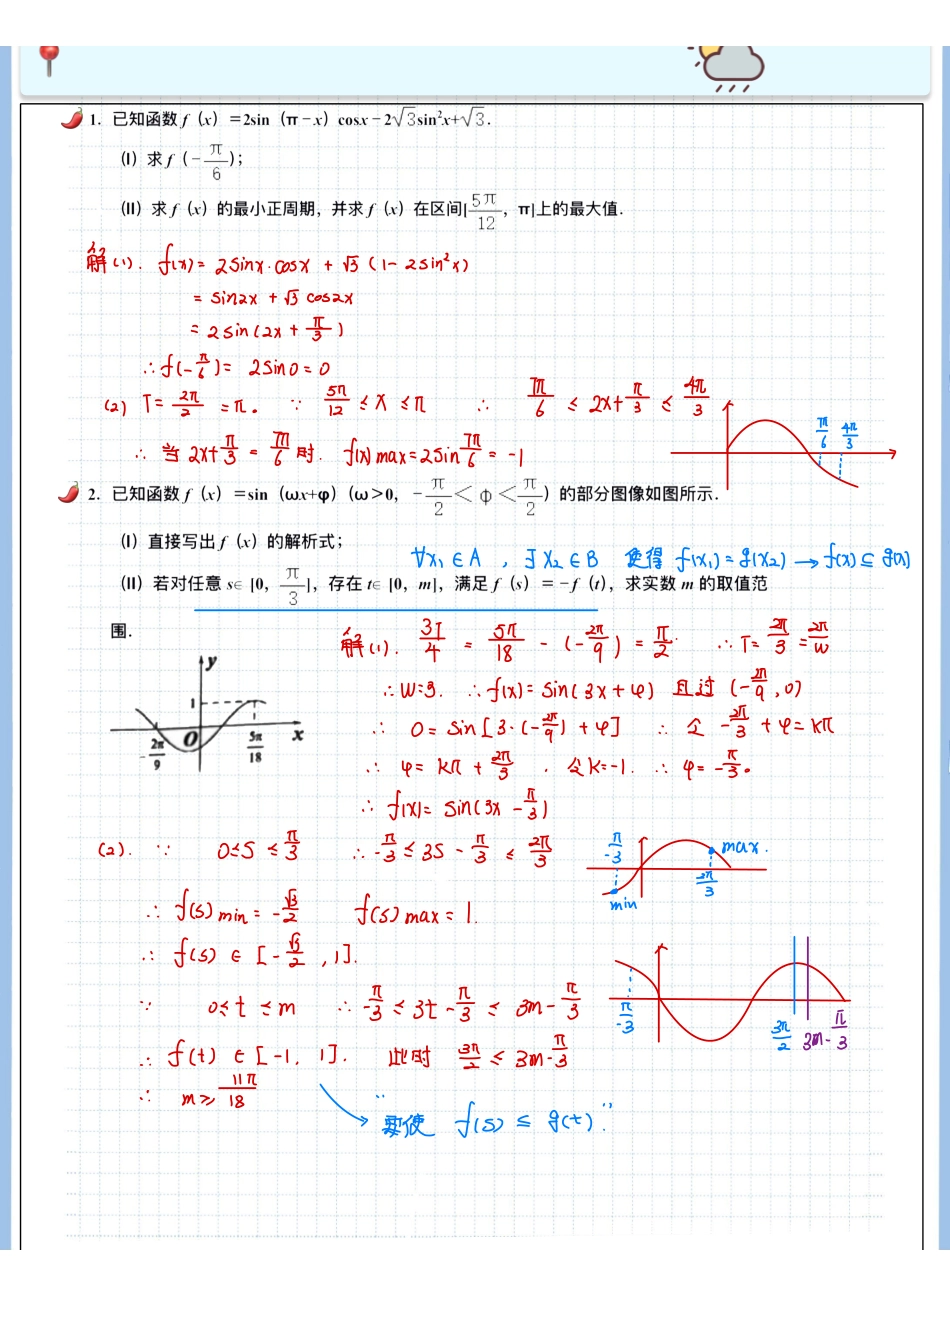 1. 已知函数 f（x）=2sin（π－x）cosx－2√3sin²x+√3.
（Ⅰ）求 f（－π/6）；
（Ⅱ）求 f（x）的最小正周期，并求 f（x）在区间[5π/12，π]上的最大值.
解(1). f(x)= 2sinx·cosx + √3 (1-2sin²x)
= sin2x + √3 cos2x
= 2sin(2x + π/3)
∴f(-π/6)= 2sin0=0
(2) T= 2π/2 =π。 ∵ 5π/12 ≤ x ≤π ∴ 7π/6 ≤ 2x+π/3 ≤ 4π/3
7π/6 4π/3
∴ 当 2x+π/3 = 7π/6 时. f(x)max=2sin7π/6 = -1
2. 已知函数 f（x）=sin（ωx+φ）（ω＞0，－π/2＜φ＜π/2）的部分图像如图所示.
（Ⅰ）直接写出 f（x）的解析式；
∀x₁∈A , ∃x₂∈B 使得 f(x₁)=g(x₂)→f(x)⊆g(x)
（Ⅱ）若对任意 s∈[0，π/3]，存在 t∈[0，m]，满足 f（s）=－f（t），求实数 m 的取值范
围.
y 1 O x -2π/9 5π/18
解(1). 3T/4 = 5π/18 - (-2π/9) = π/2. ∴T= 2π/3 = 2π/w
∴w=3. ∴f(x)= sin(3x+φ) 且过 (-2π/9 ,0)
∴ 0= sin[3·(-2π/9)+φ] ∴ 令 -2π/3 +φ=kπ
∴ φ= kπ + 2π/3 . 令k=-1. ∴ φ= -π/3。
∴ f(x)= sin(3x -π/3)
(2). ∵ 0≤s ≤π/3 ∴-π/3 ≤ 3s -π/3 ≤ 2π/3
-π/3 max. min 2π/3
∴ f(s)min= -√3/2 f(s)max= 1.
∴ f(s) ∈ [-√3/2 ,1].
∵ 0≤t ≤m ∴ -π/3 ≤ 3t -π/3 ≤ 3m-π/3
-π/3 3π/2 3m-π/3
∴ f(t) ∈[-1, 1]. 此时 3π/2 ≤ 3m-π/3
∴ m≥ 11π/18
“实使 f(s) ⊆ g(t).”